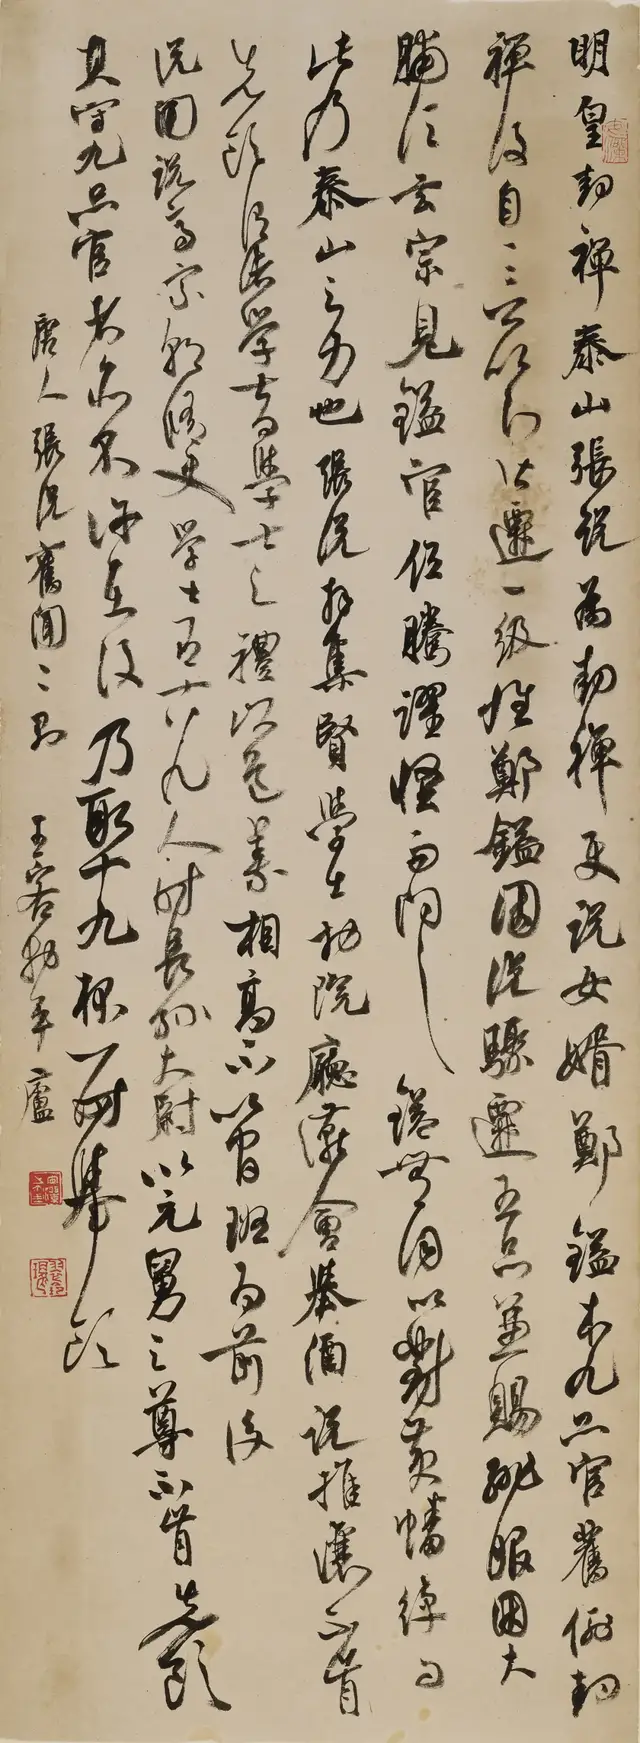 明皇封禪泰山張說為封禪使說女婿鄭鎰本九品官舊例封
禪後自三公以下皆遷一級惟鄭鎰因說驟遷五品並賜緋服因大
脯次玄宗見鎰官位騰躍怪而問之鎰無詞以對黃幡綽曰
此乃泰山之力也張說拜集賢學士於院廳讌會舉酒說推讓不肯
先飲謂諸學士曰學士之禮以道義相高不以官班為前後
說聞說高宗朝修史學士有十八九人時長孫太尉以元舅之尊不肯先飲
其守九品官者亦不許在後乃取十九杯一時舉飲
唐人張說舊聞二則 王容於平廬